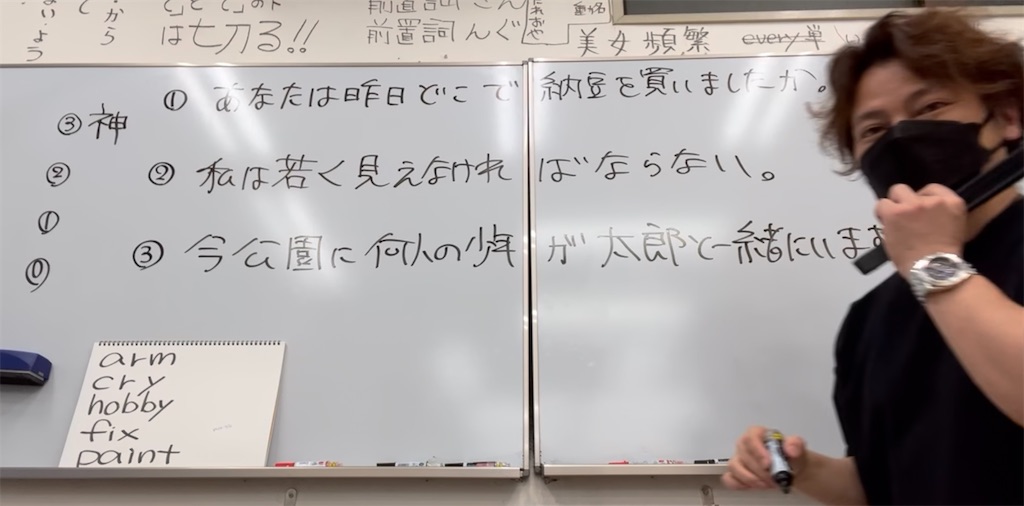 ない、よう
から
は七刀る!!
前置詞さん
前置詞んぐ
美女頻繁 every単
① あなたは昨日どこで納豆を買いましたか。
③神
② ② 私は若く見えなければならない。
①
③ 今公園に何人の少年が太郎と一緒にいま
⓪
arm
cry
hobby
fix
paint